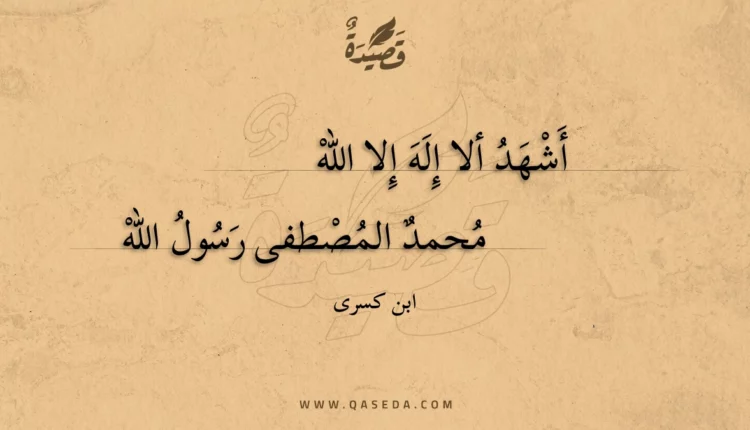 قَصِيْدَةٌ
أَشْهَدُ ألا إِلَهَ إِلا اللهْ
مُحمدٌ المُصْطفى رَسُولُ اللهْ
ابن كسرى
WWW.QASEDA.COM